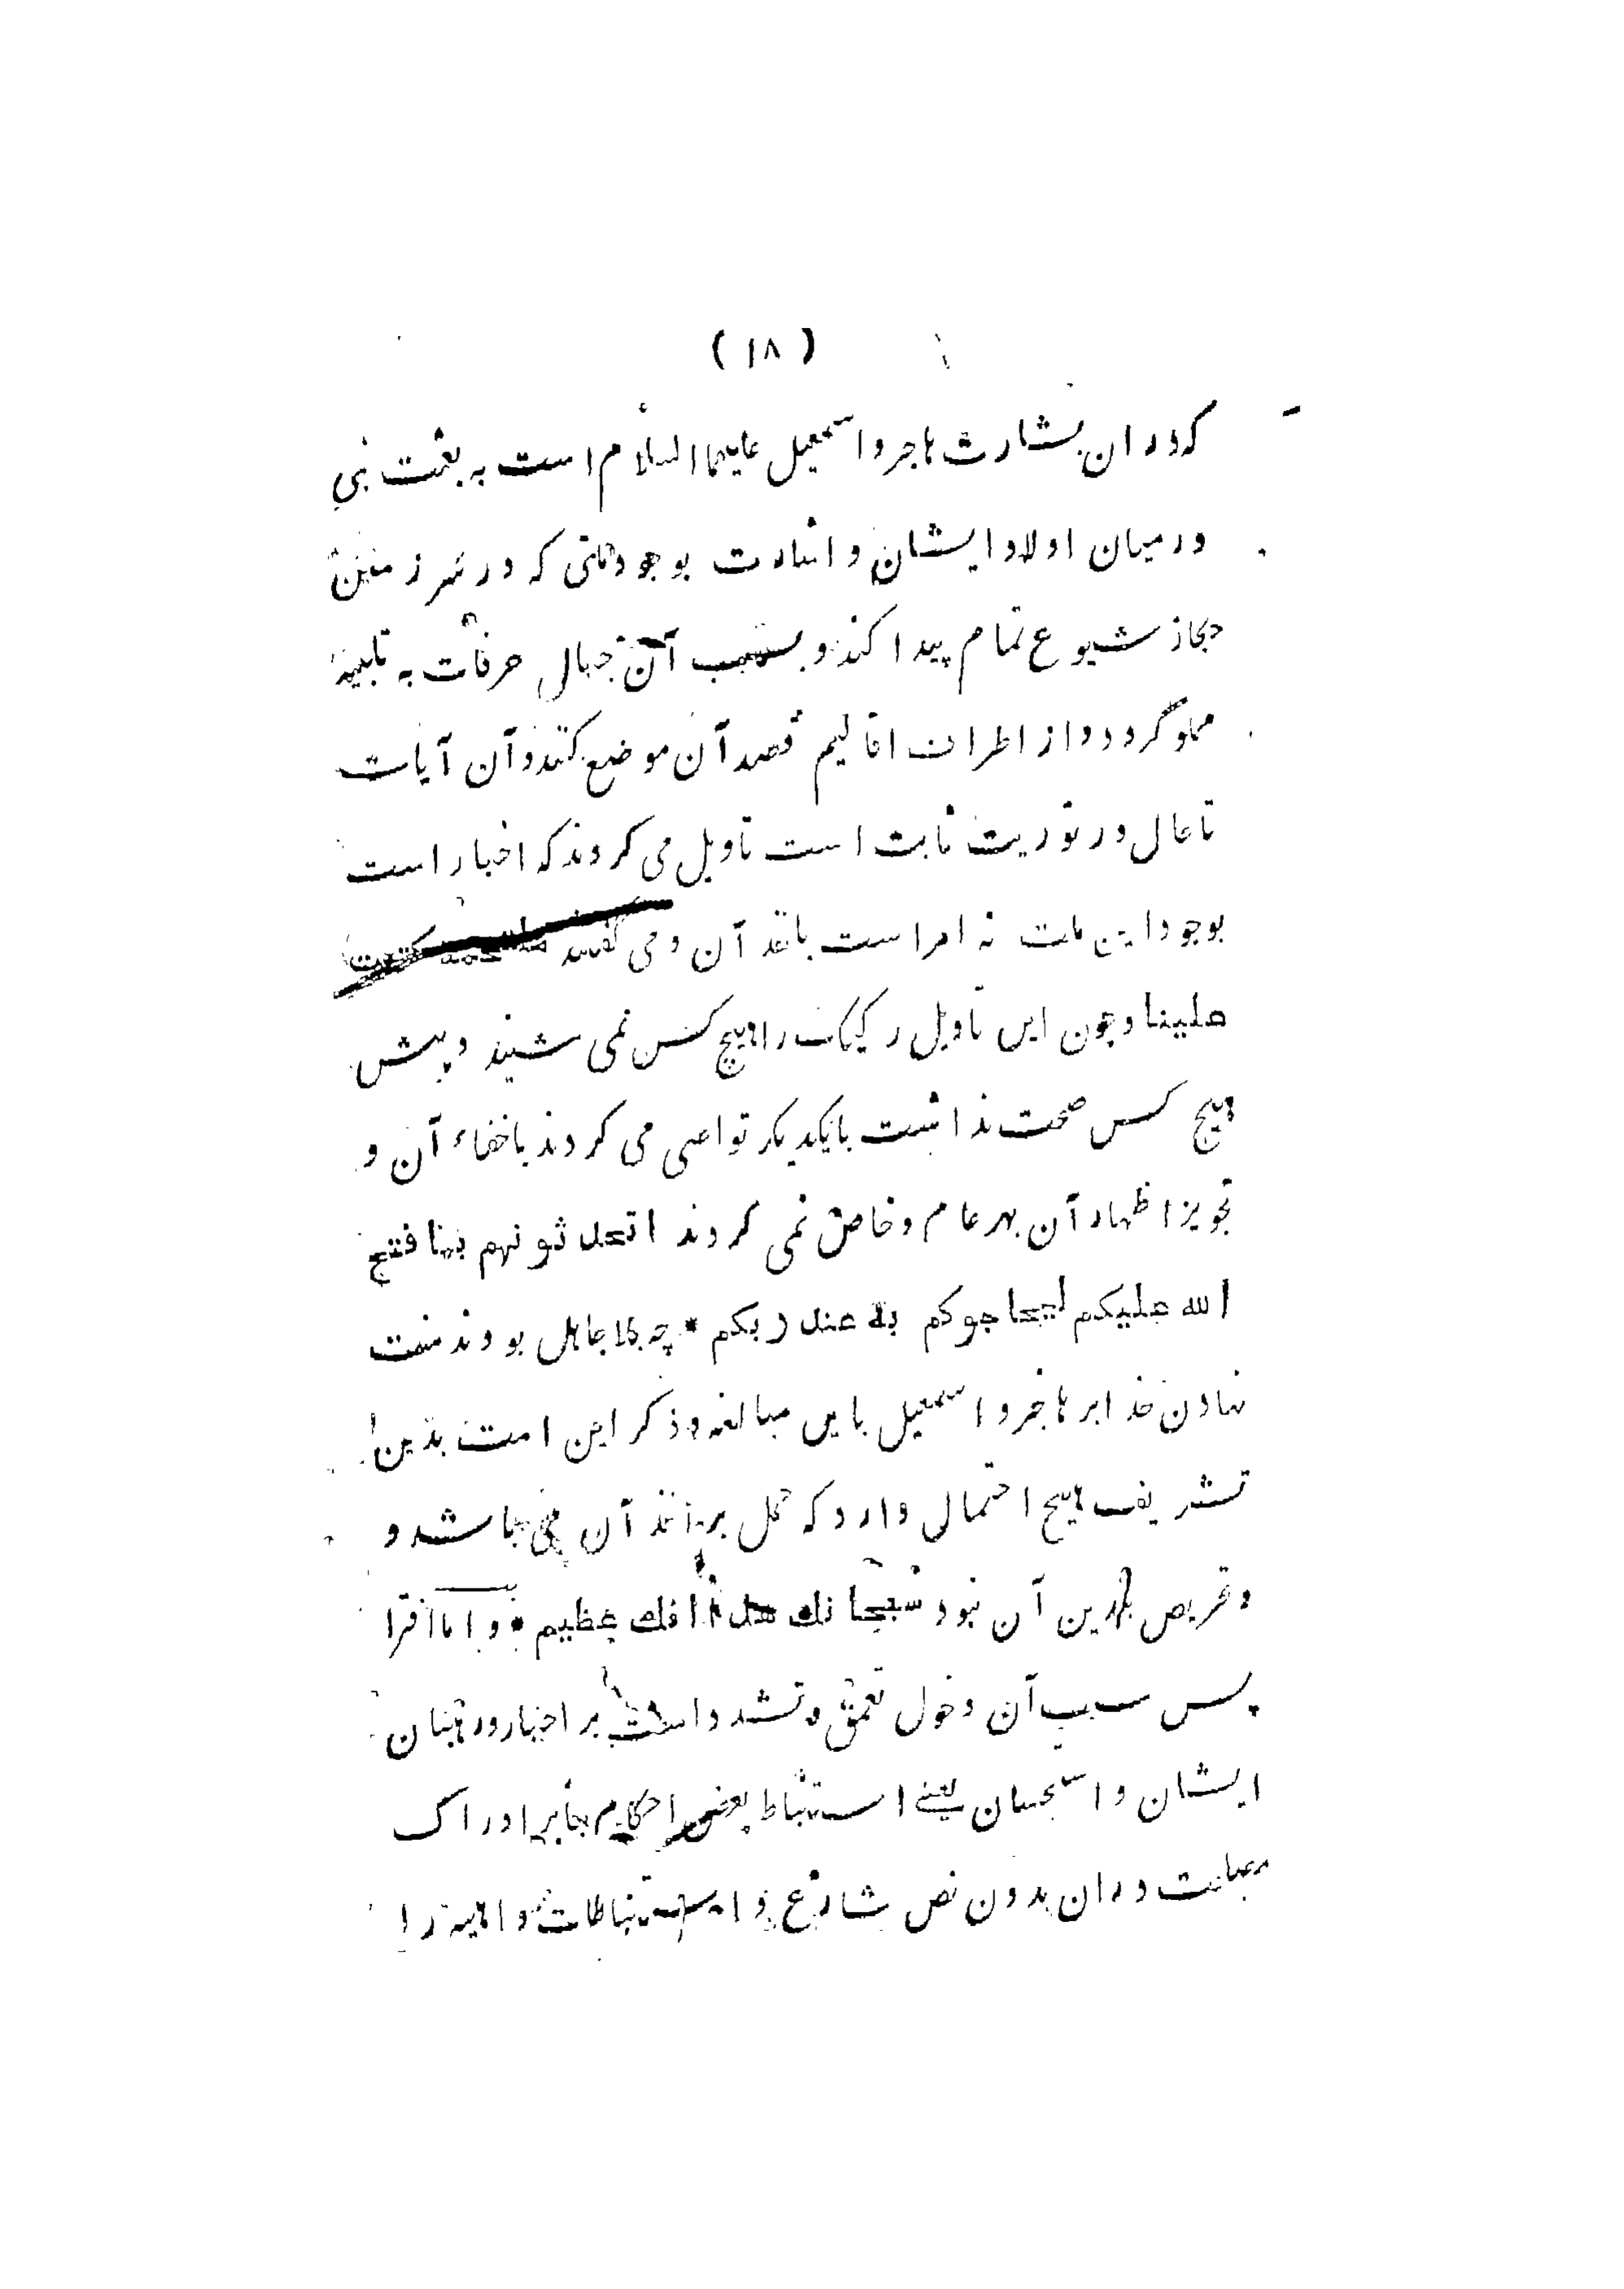 ( ۱۸ )
که دران بشارت هاجر و اسمعیل علیهما السلام است به بعثت نبی
درمیان اولاد ایشان و اشارت بوجود ملتی که در سرزمین
حجاز شیوع تمام پیدا کند و بسبب آن جبال عرفات به تلبیه
مملو گردد و از اطراف اقالیم قصد آن موضع کنند و آن آیات
تا حال در توریت ثابت است تاویل می کردند که اخبار است
بوجود این ملت نه امر است باخذ آن و می گفتند ملحمة کتبت
علینا و چون این تاویل رکیک را هیچ کس نمی شنید و پیش
هیچ کس صحت نداشت بایکدیگر تواصی می کردند باخفاء آن و
تجویز اظهار آن بهر عام و خاص نمی کردند اتحدثونهم بما فتح
الله علیکم لیحاجوکم به عند ربکم * چه بلا جاهل بودند منت
نهادن خدا بر هاجر و اسمعیل باین مبالغه و ذکر این امت بدین
تشریف هیچ احتمال دارد که حمل بر اخذ آن می باشد و
و تحریص بر تدین آن نبود سبحانك هذا افك عظیم * و اما افترا
پس سبب آن دخول تعمق و تشدد است بر احبار و رهبان
ایشان و استحسان یعنے استنباط بعض احکام بنابر ادراک
مصلحت دران بدون نص شارع و استنباطات واهیه را